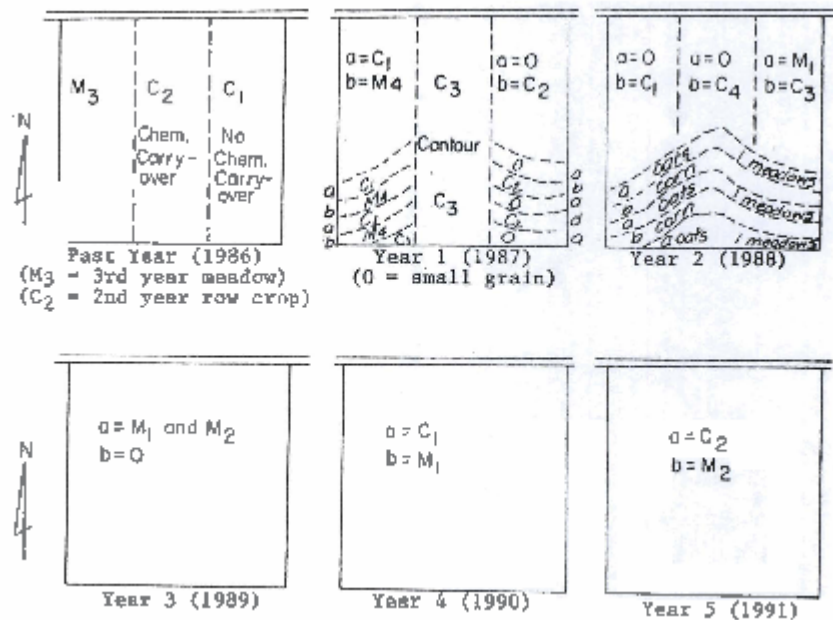 M3
C2
C1
Chem.
Carry-
over
No
Chem.
Carry-
over
N
Past Year (1986)
(M3 = 3rd year meadow)
(C2 = 2nd year row crop)
a=C1
b=M4
C3
a=O
b=C2
Contour
C3
a
b
a
b
C1
M4
C1
M4
C1
O
C2
O
C2
O
a
b
a
b
a
Year 1 (1987)
(O = small grain)
a=O
b=C1
a=O
b=C4
a=M1
b=C3
a
b
a
b
a
oats
corn
oats
corn
oats
meadow1
meadow2
meadow3
Year 2 (1988)
N
a=M1 and M2
b=O
Year 3 (1989)
a=C1
b=M1
Year 4 (1990)
a=C2
b=M2
Year 5 (1991)